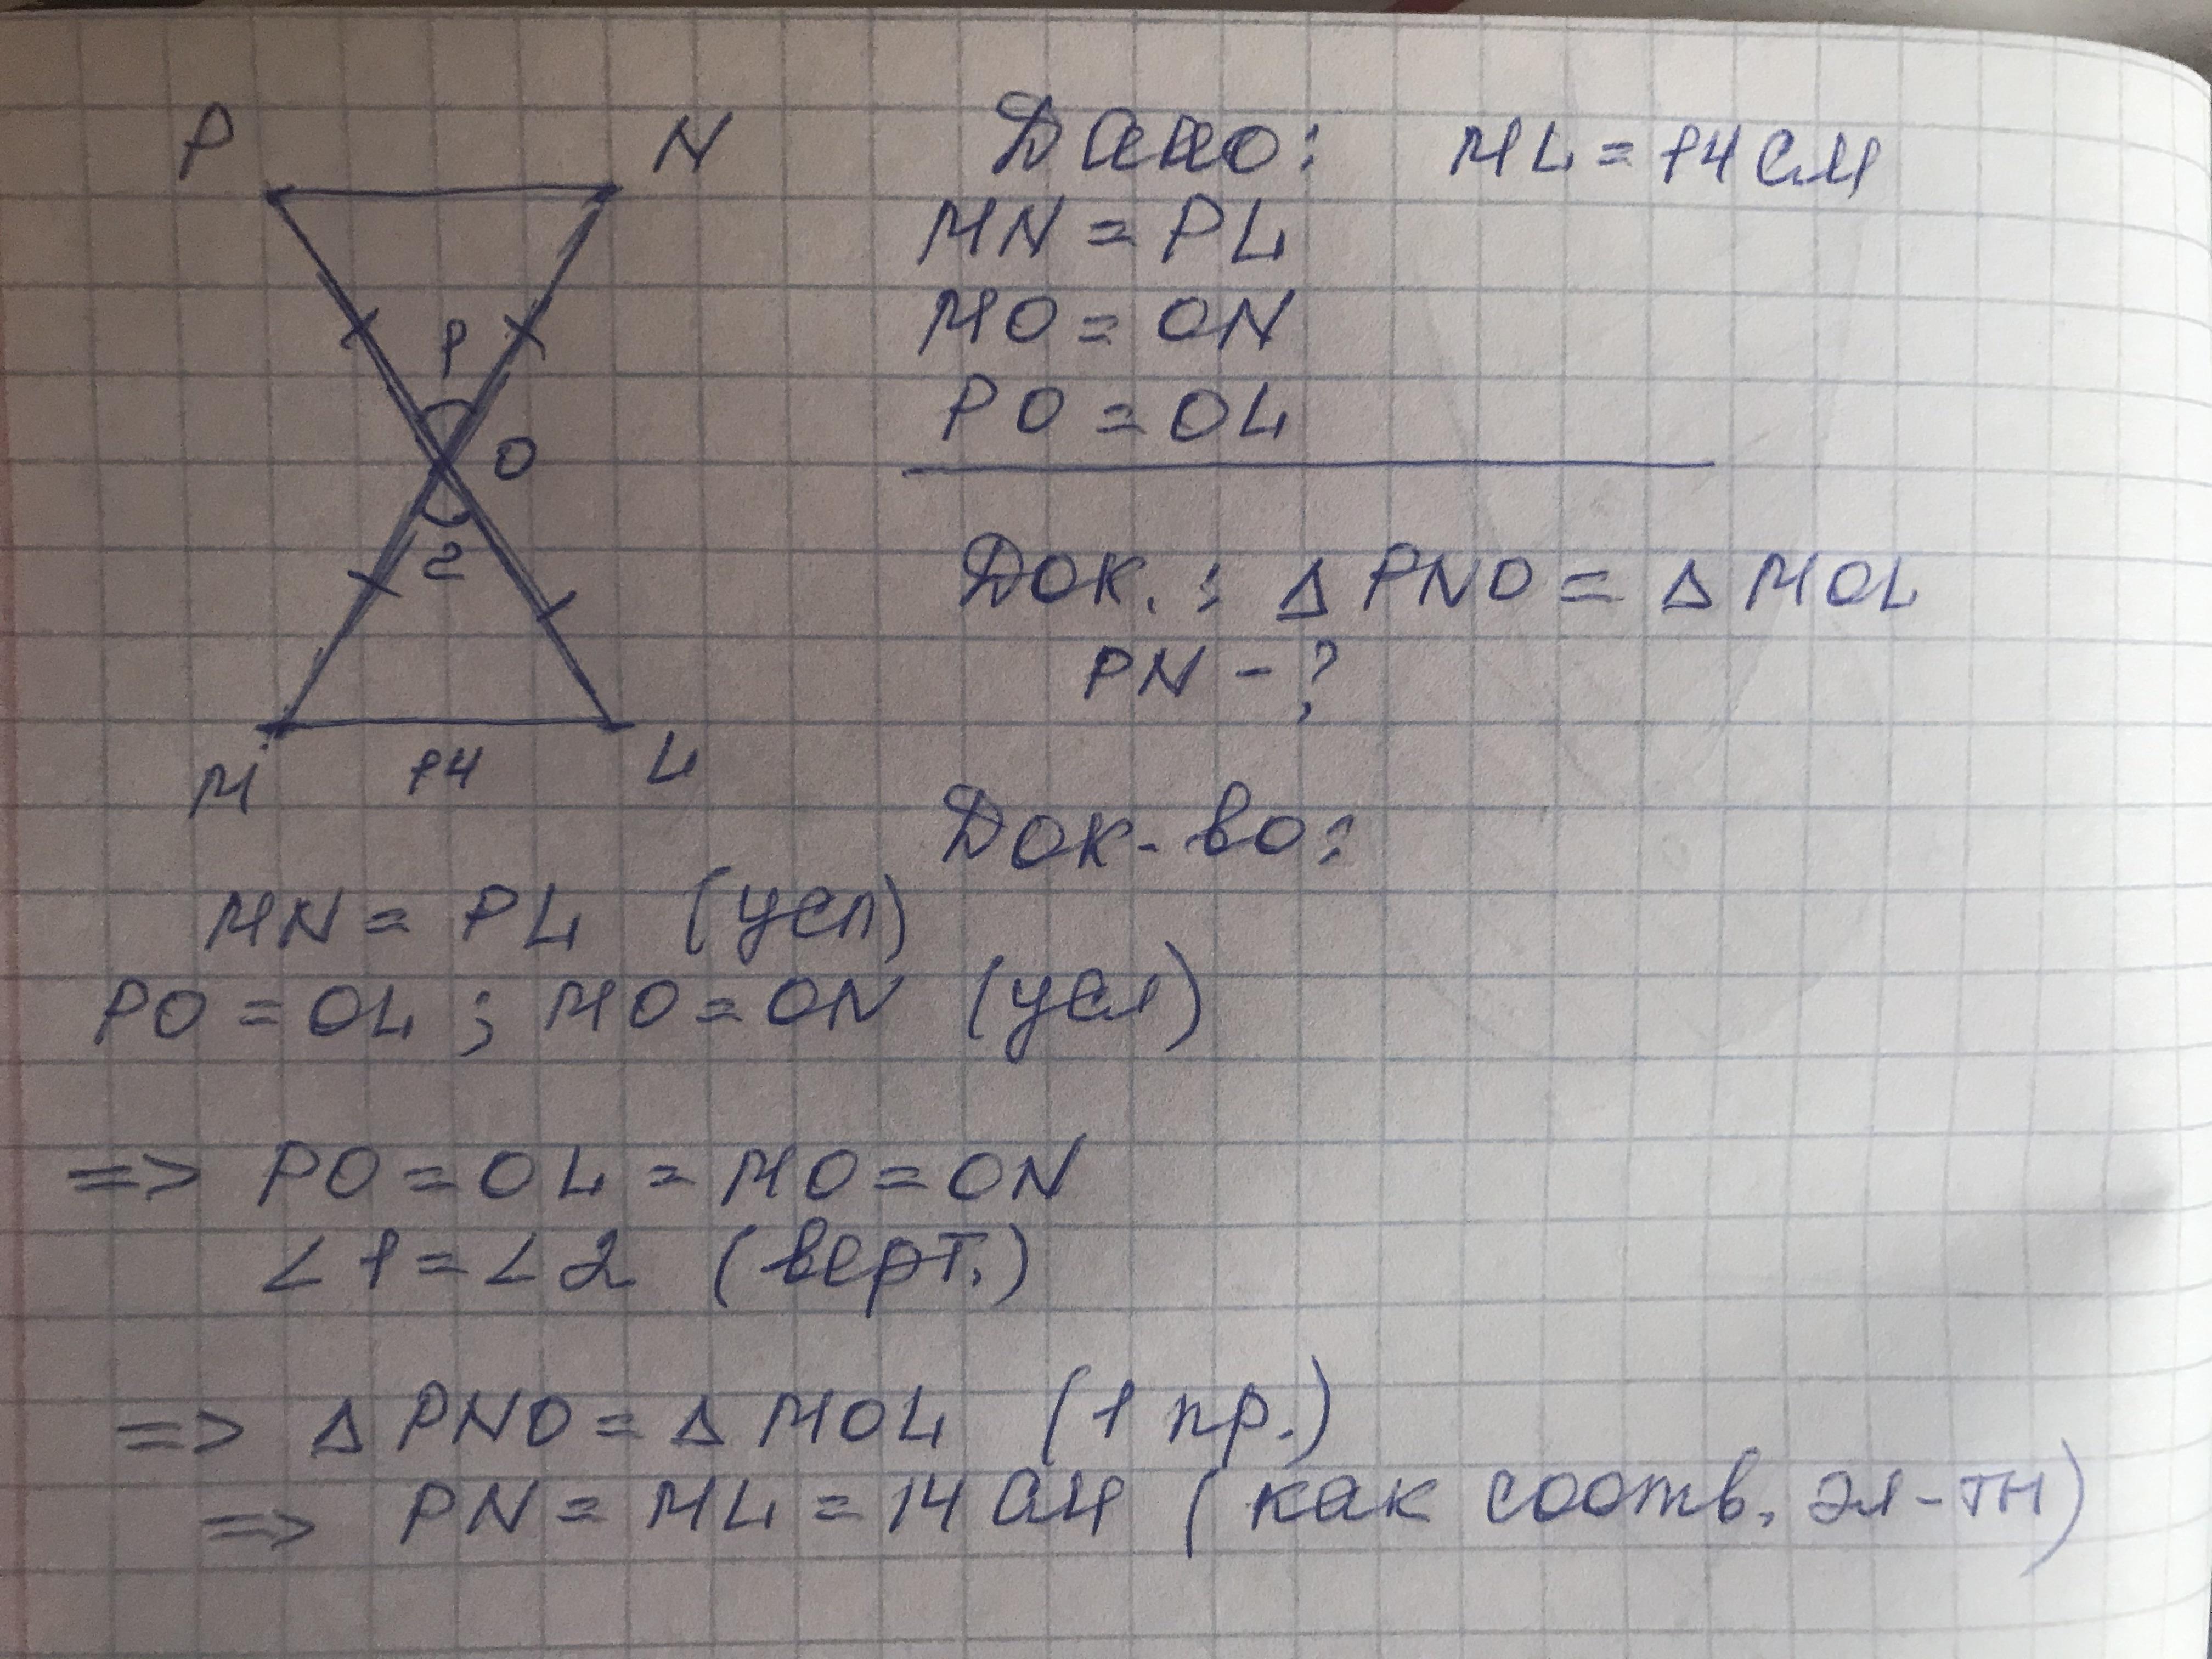 P N
1
O
2
M 14 L
Дано: ML = 14 см
MN = PL
MO = ON
PO = OL
Док.: Δ PNO = Δ MOL
PN - ?
Док-во:
MN = PL (усл)
PO = OL ; MO = ON (усл)
=> PO = OL = MO = ON
∠1 = ∠2 (верт.)
=> Δ PNO = Δ MOL (1 пр.)
=> PN = ML = 14 см (как соотв. эл-ты)